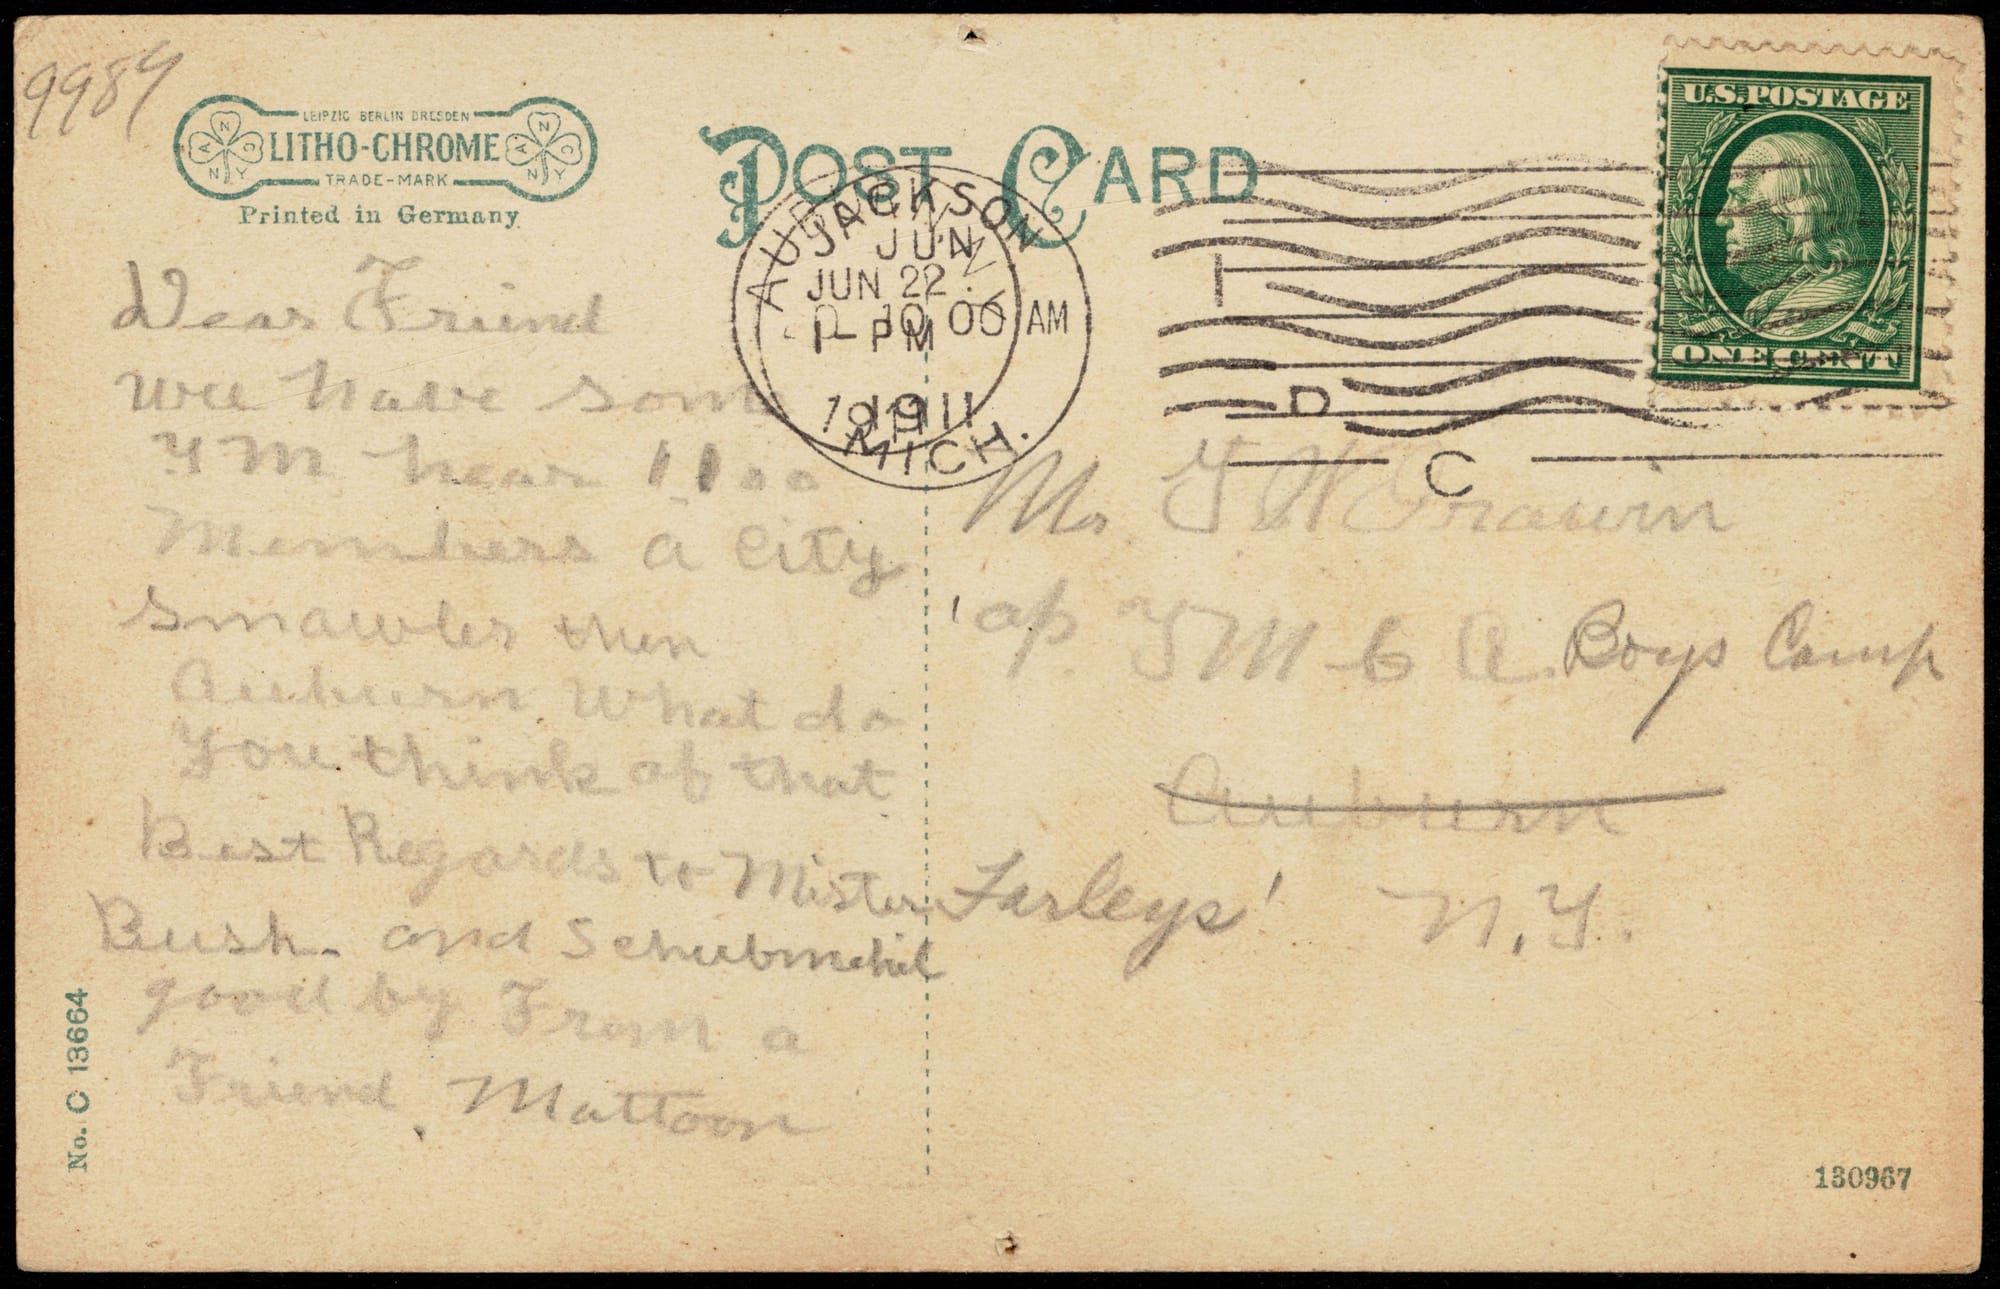 9984
LEIPZIG BERLIN DRESDEN
LITHO-CHROME
TRADE-MARK
Printed in Germany
POST CARD
U.S. POSTAGE
ONE CENT
JACKSON
MICH.
JUN
10 00 AM
1911
AUBURN, N.Y.
JUN 22
1 - PM
1911
D
C
Dear Friend
wee have some
Y M hear 1100
Members a City
smawler then
Auburn What do
You think of that
Best Regards to Mister
Bush. and Schubmehil
good by From a
Friend. Mattoon
Mr
Y M C A. Boys Camp
Auburn
Farleys' N.Y.
No. C 13664
130967